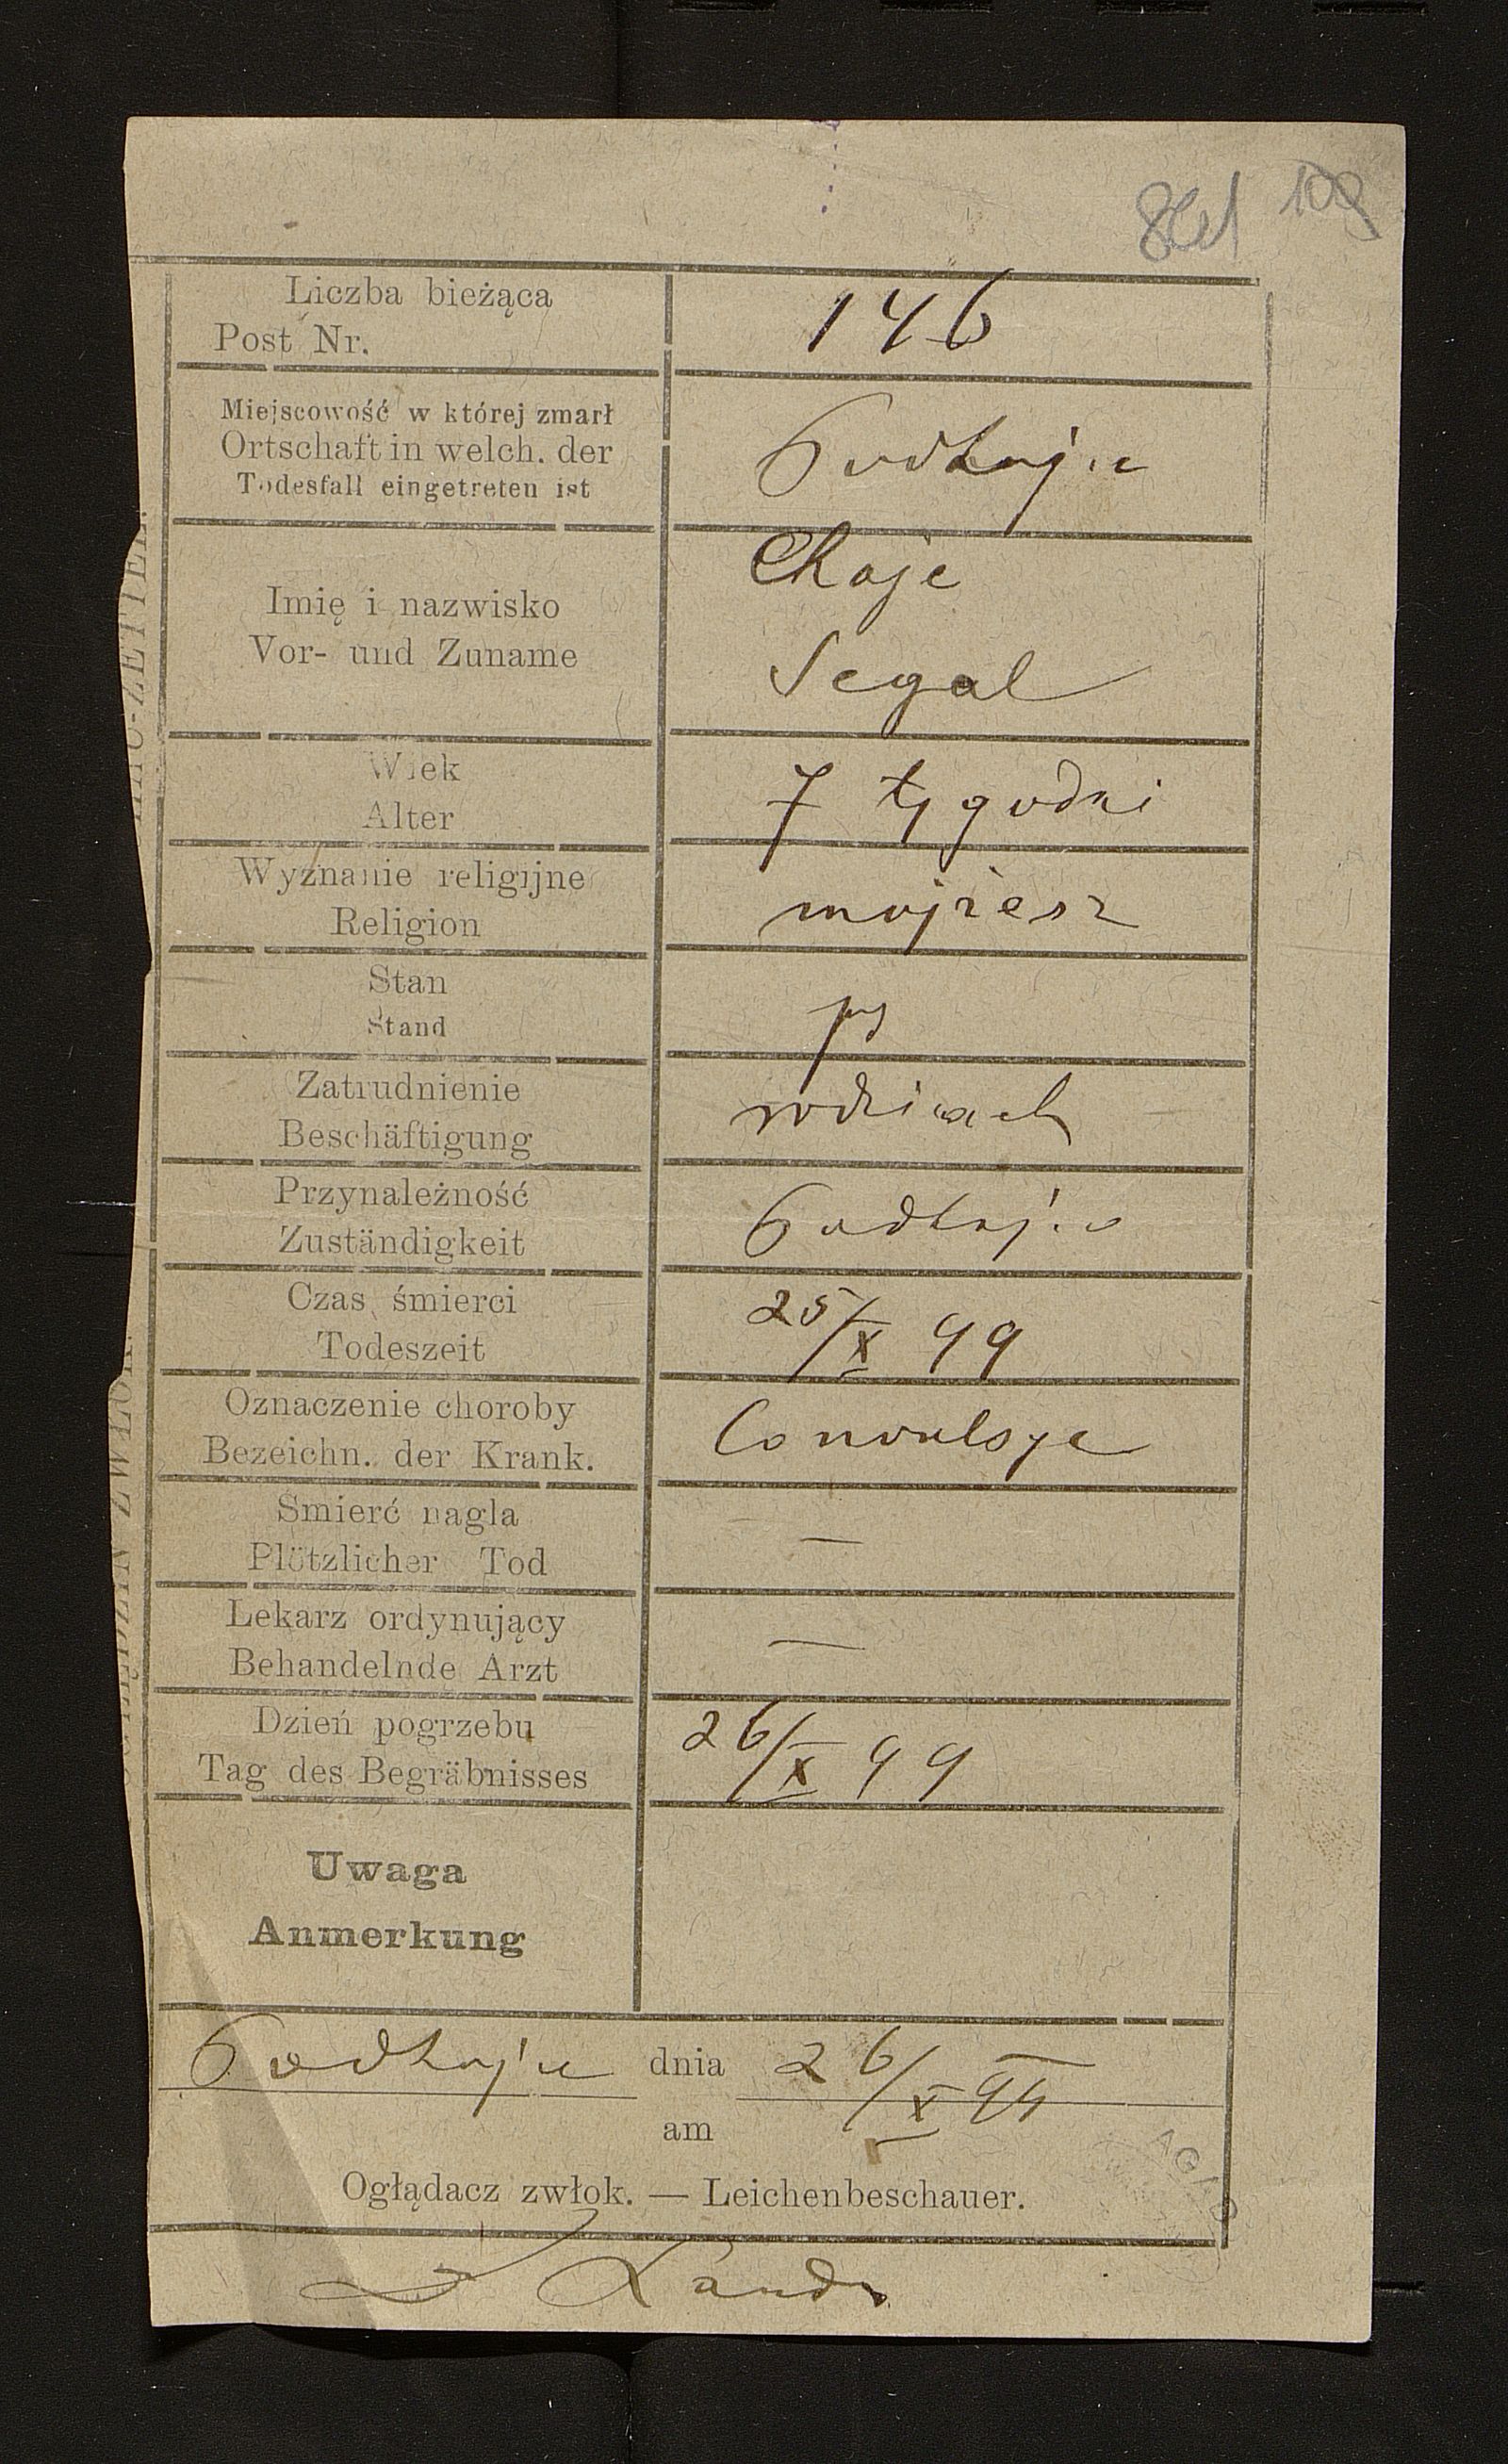 109
Liczba bieżąca
Post Nr.
146
Miejscowość w której zmarł
Ortschaft in welch. der
Todesfall eingetreten ist
Podhajce
Imię i nazwisko
Vor- und Zuname
Chaje
Segal
Wiek
Alter
7 tygodni
Wyznanie religijne
Religion
mojżesz
Stan
Stand
przy
Zatrudnienie
Beschäftigung
rodzicach
Przynależność
Zuständigkeit
Podhajce
Czas śmierci
Todeszeit
25/X 99
Oznaczenie choroby
Bezeichn. der Krank.
Convulsye
Smierć nagla
Plötzlicher Tod
—
Lekarz ordynujący
Behandelnde Arzt
—
Dzień pogrzebu
Tag des Begräbnisses
26/X 99
Uwaga
Anmerkung
Podhajce dnia 26/X 99
am
Oglądacz zwłok. — Leichenbeschauer.
AGAD